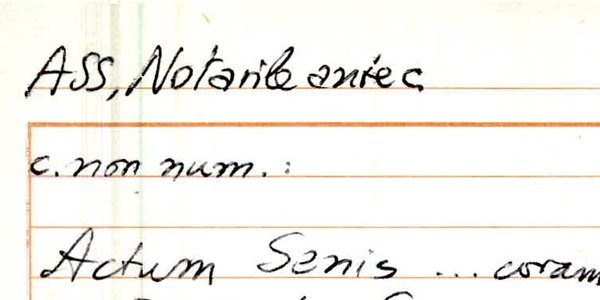 ASS, Notarile antec
c. non num. :
Actum Senis ... coram